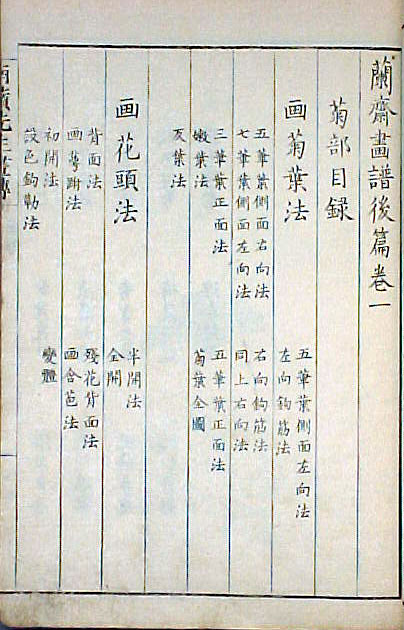 蘭齋畫譜後篇卷一
菊部目録
画菊葉法
五筆葉側面左向法
左向鈎筋法
五筆葉側面右向法
右向鈎筋法
七筆葉側面左向法
同上右向法
三筆葉正面法
五筆葉正面法
嫩葉法
菊葉全圖
反葉法
画花頭法
半開法
全開
背面法
殘花背面法
画萼跗法
画含芭法
初開法
變體
設色鈎勒法